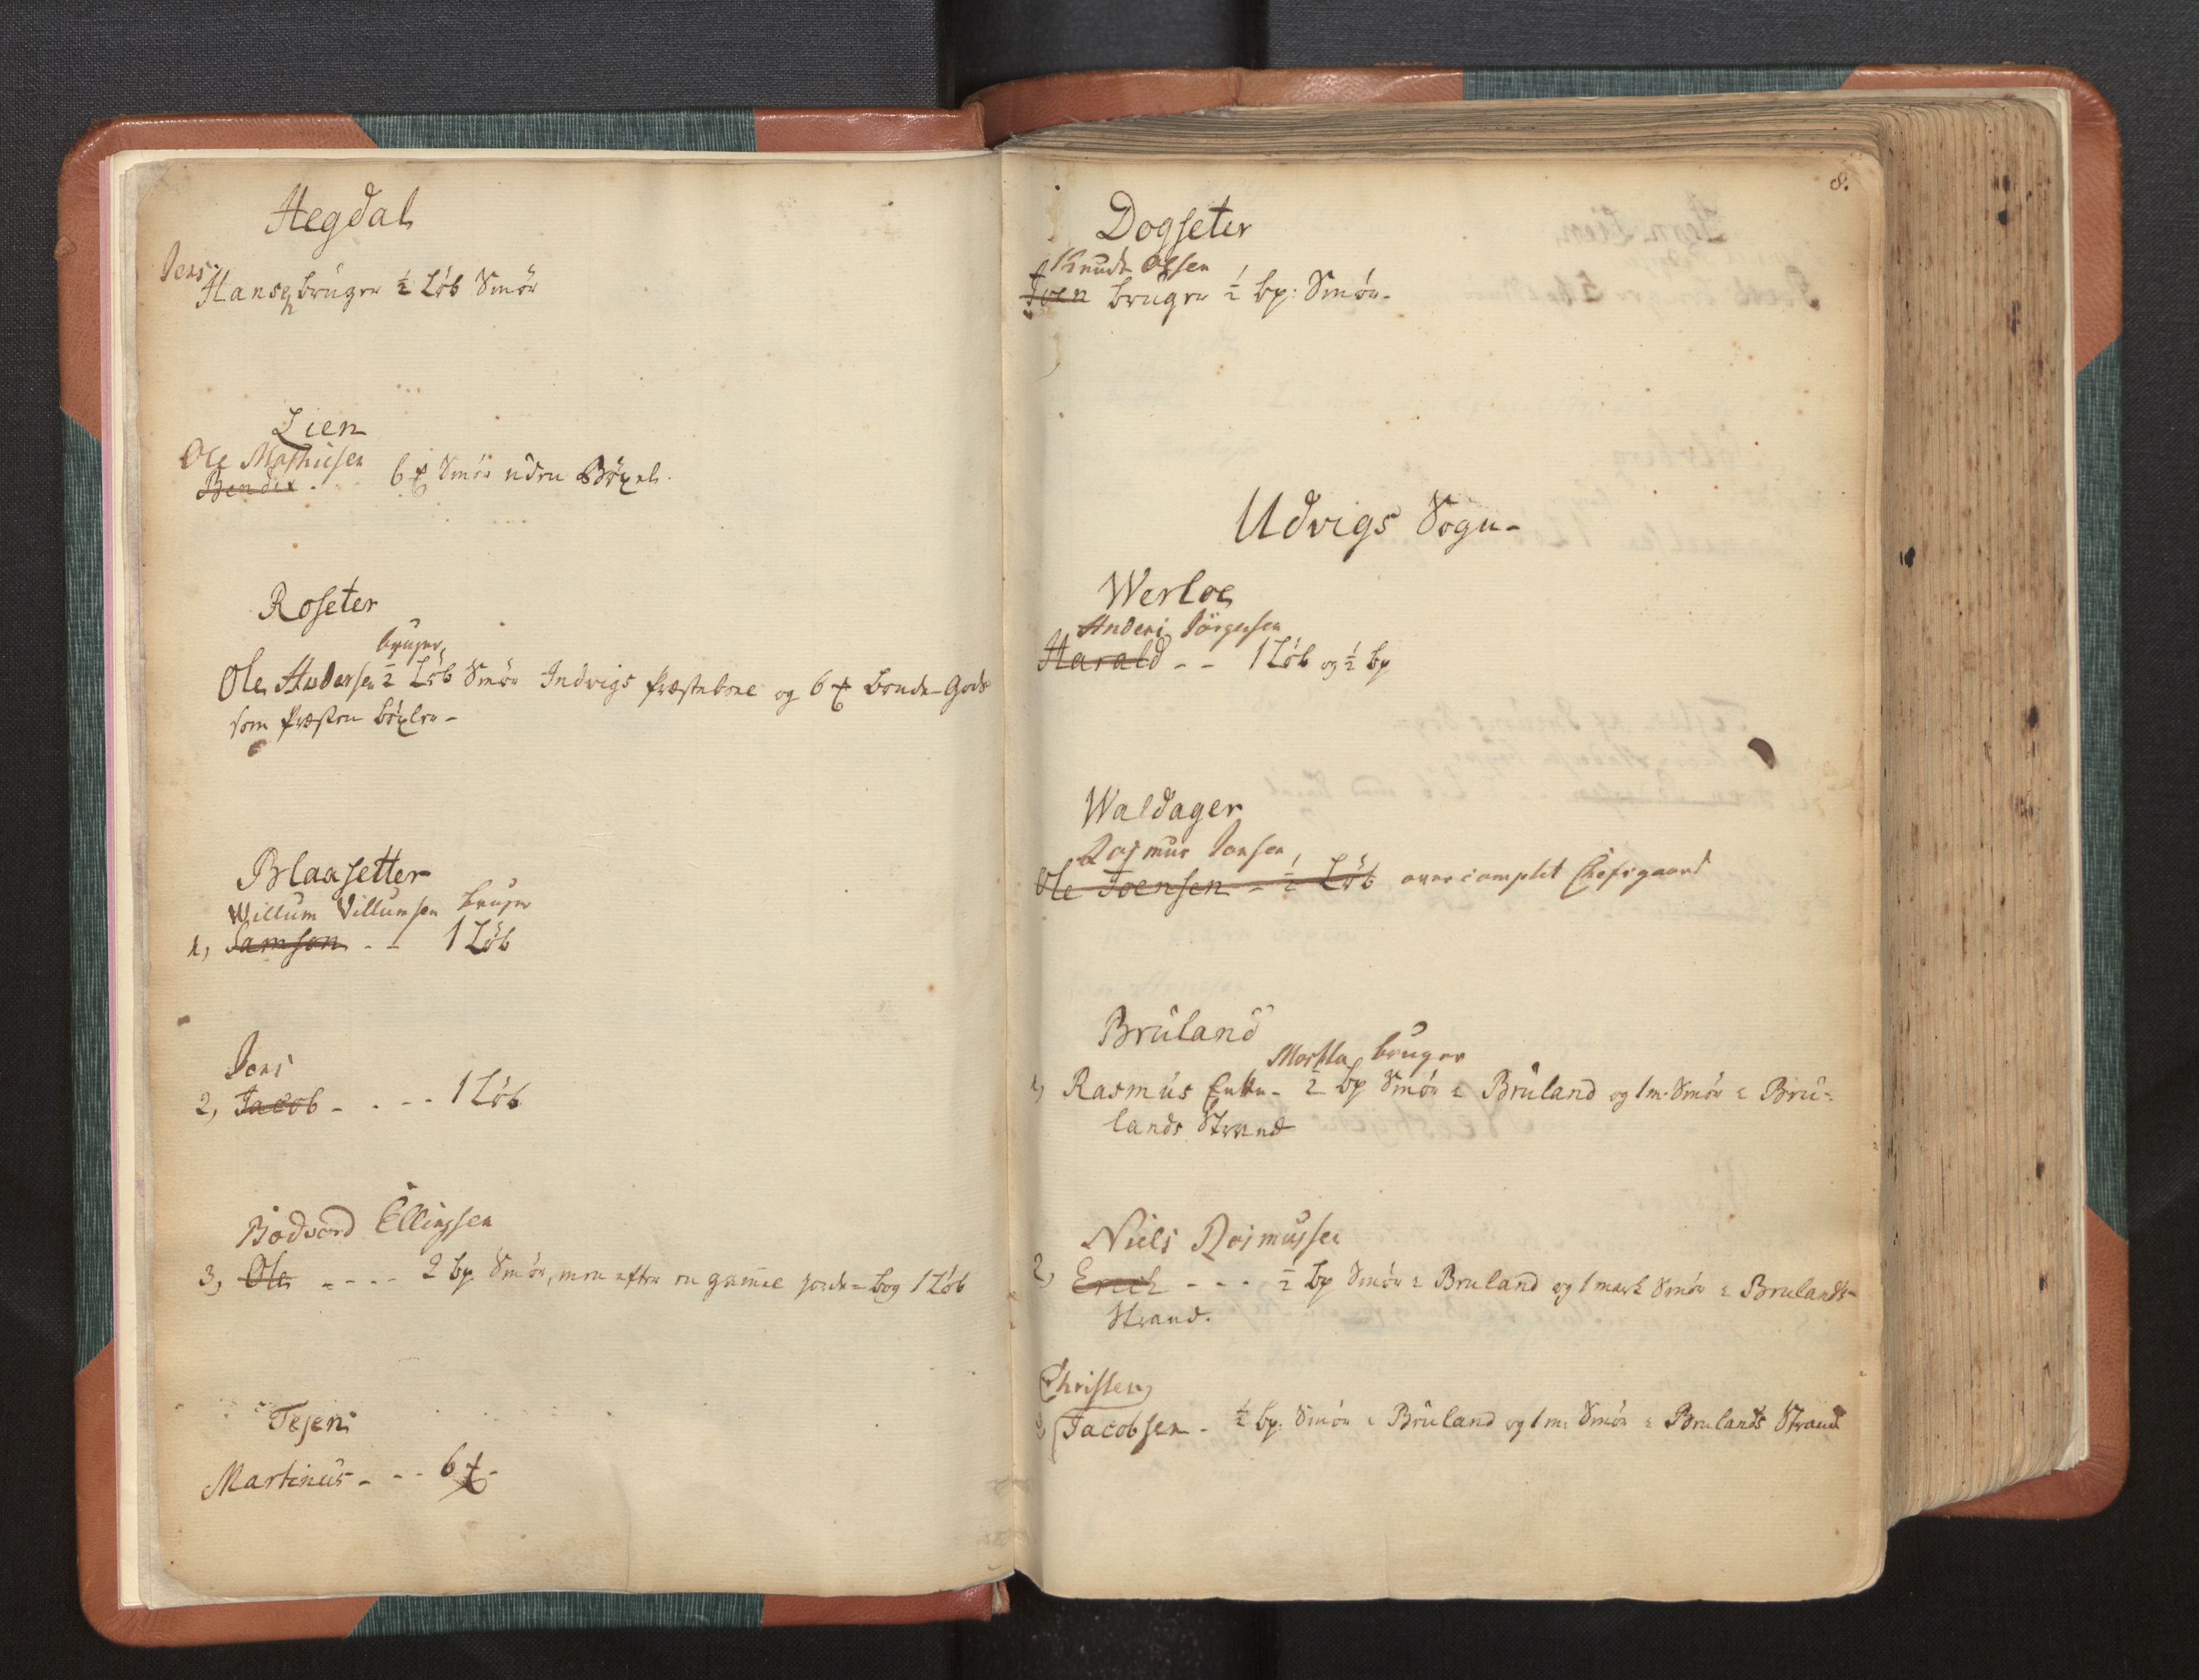 Hegdal
Jens
Hansen bruger ½ Løb Smör
Lien
Ole Mathiesen
Bendix - - 6 ℔ Smör uden Böxel.
Roseter
bruger
Ole Andersen ½ Løb Smör Indvigs Præstebone og 6 ℔ bonde-Gods
som Præsten böxler-
Blaasetter
Willum Villumsen bruger
1, Samson - - 1 Løb
Jens
2, Jacob - - - - 1 Løb
Bodvard Ellingsen
3, Ole - - - - 2 bp. Smör, men efter en gammel Jorde-bog 1 Løb
Tejen
Martinus - - - 6 ℔-
8.
Dogseter
Knud Olsen
Joen bruger ½ bp: Smör-
Udvigs Sogn-
Werloe
Anders Jörgensen
Harald - - 1 Løb og ½ bp
Waldager
Rasmus Jonsen
Ole Joensen - ½ Løb overcomplet Chefsgaard
Bruland
bruger
1, Rasmus Enke - ½ bp Smör i Bruland og 1 m. Smör i Bru-
lands Strand
Niels Rasmussen
2, Erich - - - ½ bp Smör i Bruland og 1 mark Smör i Brulands-
Strand.
Christen
3, Jacobsen - ½ bp. Smör i Bruland og 1 m: Smör i Brulands Strand